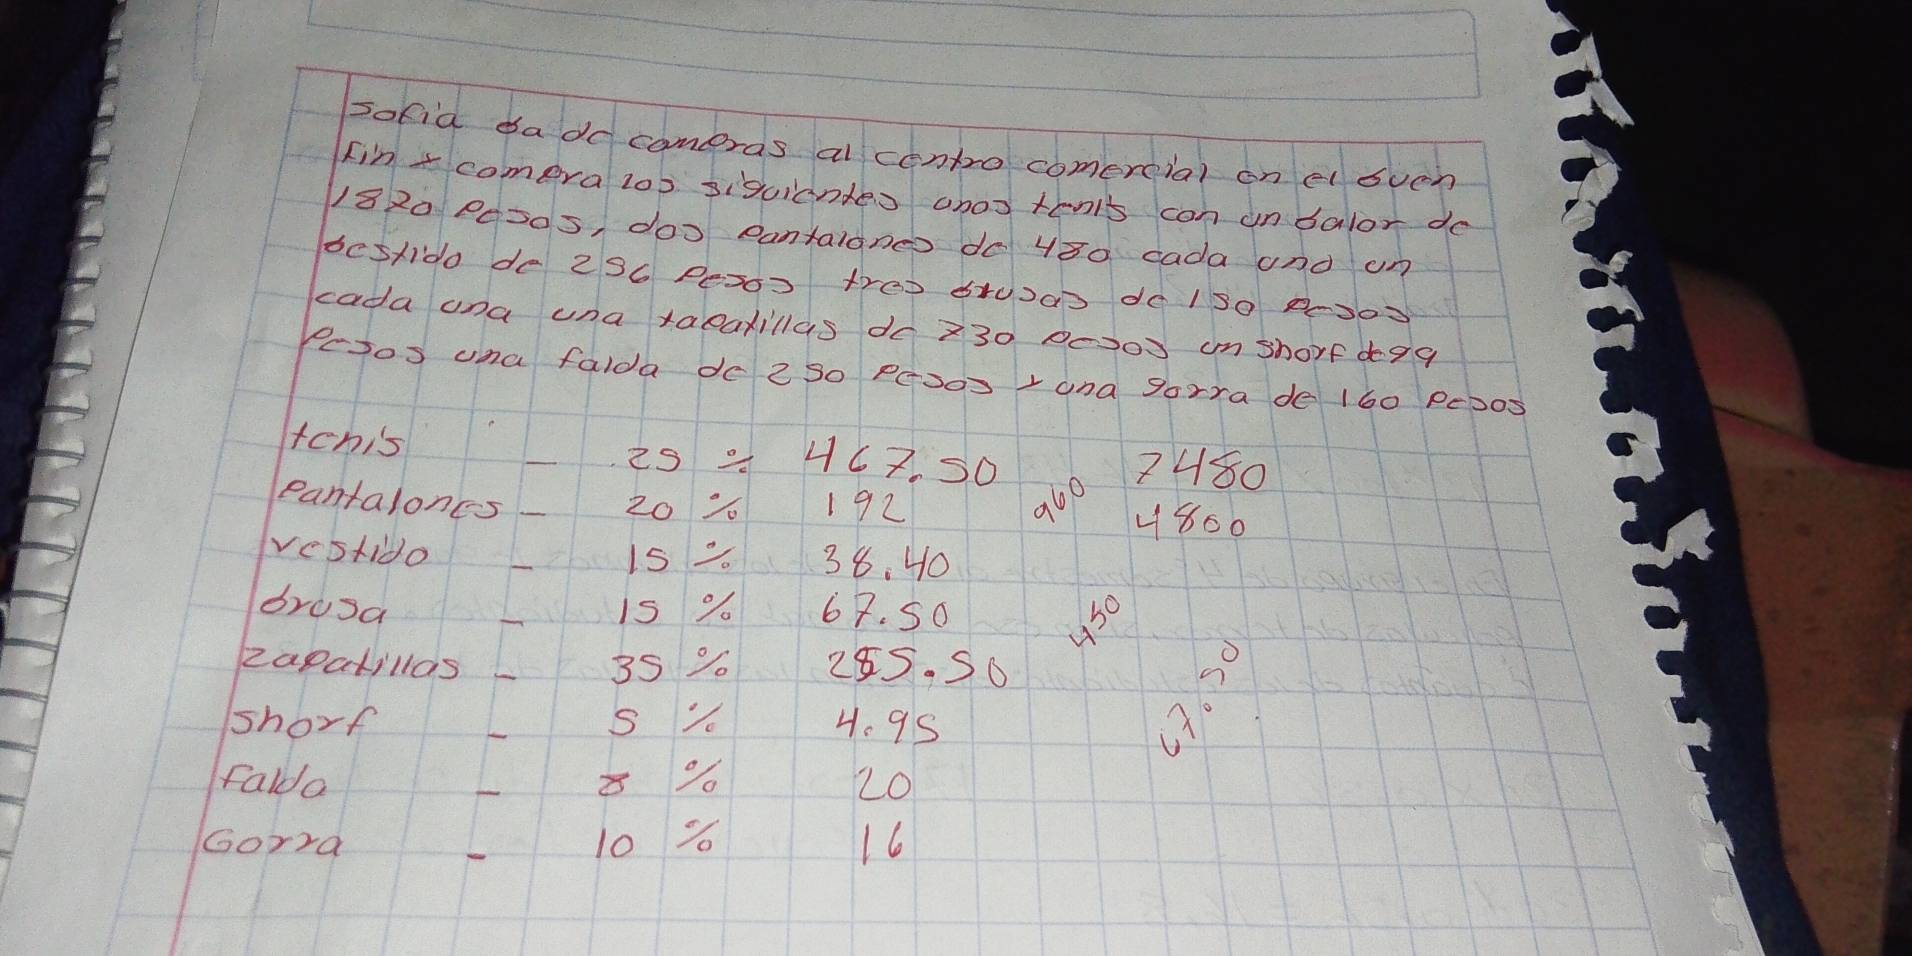 Sofia ba de compras al centro comercial en el buen
fin y compra los siguientes unos tenis con un balor de
1870 pesos, dos pantalones de 480 cada uno un
bestido de 256 pesos tres brusas de 150 pesos
cada una una tapatillas de 730 pesos un shorf de 99
pesos una falda de 250 pesos y una gorra de 160 pesos
tenis - 25 % 467.50 7480
pantalones - 20 % 192 960 4800
vestido - 15 % 38.40
brusa - 15 % 67.50 450
zapatillas - 35 % 255.50 67.50
shorf - 5 % 4.95
falda - 8 % 20
Gorra - 10 % 16